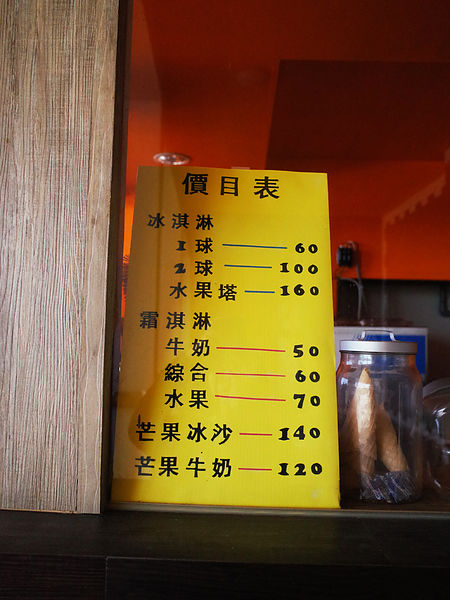 價目表
冰淇淋
1球 60
2球 100
水果塔 160
霜淇淋
牛奶 50
綜合 60
水果 70
芒果冰沙 140
芒果牛奶 120